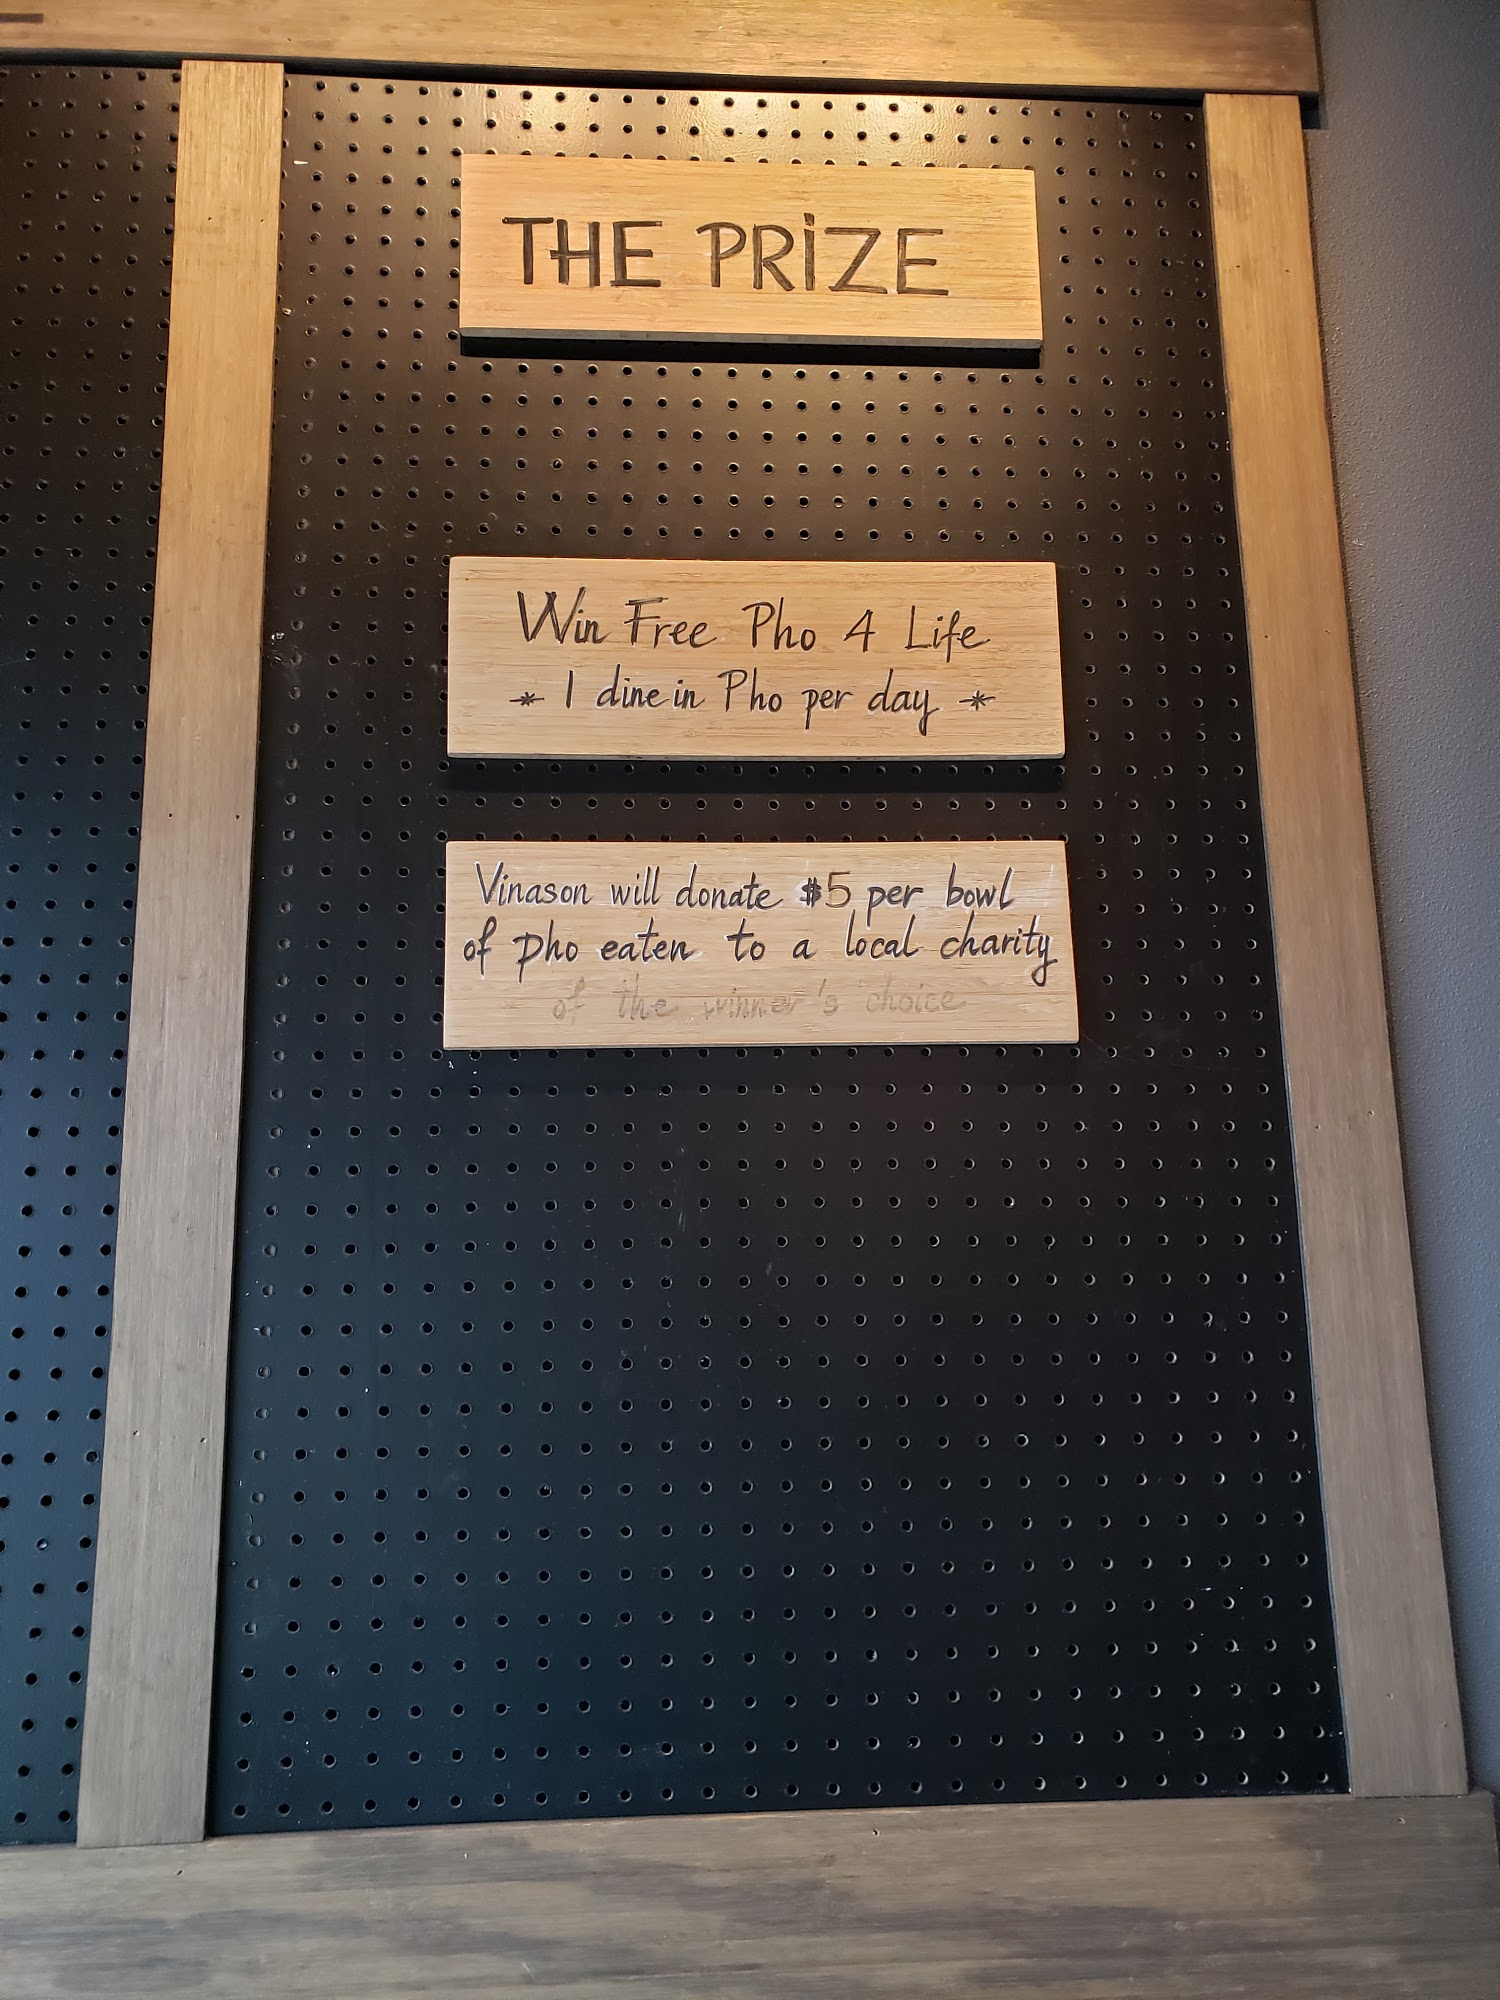 THE PRIZE
Win Free Pho 4 Life
* 1 dine in Pho per day *
Vinason will donate $5 per bowl
of pho eaten to a local charity
of the winner's choice